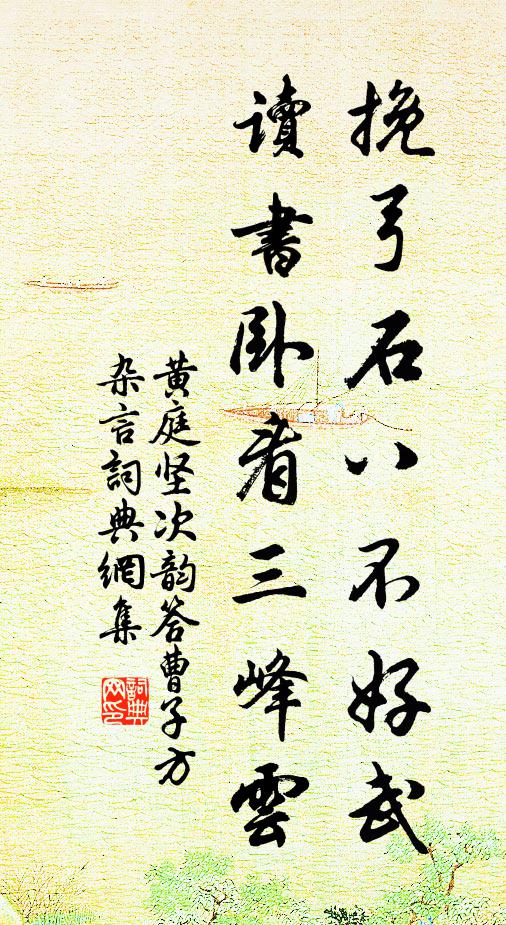 挽弓石八不好武
讀書卧看三峰雲
黄庭坚次韵答曹子方
杂言詞典網集
詞典
网印